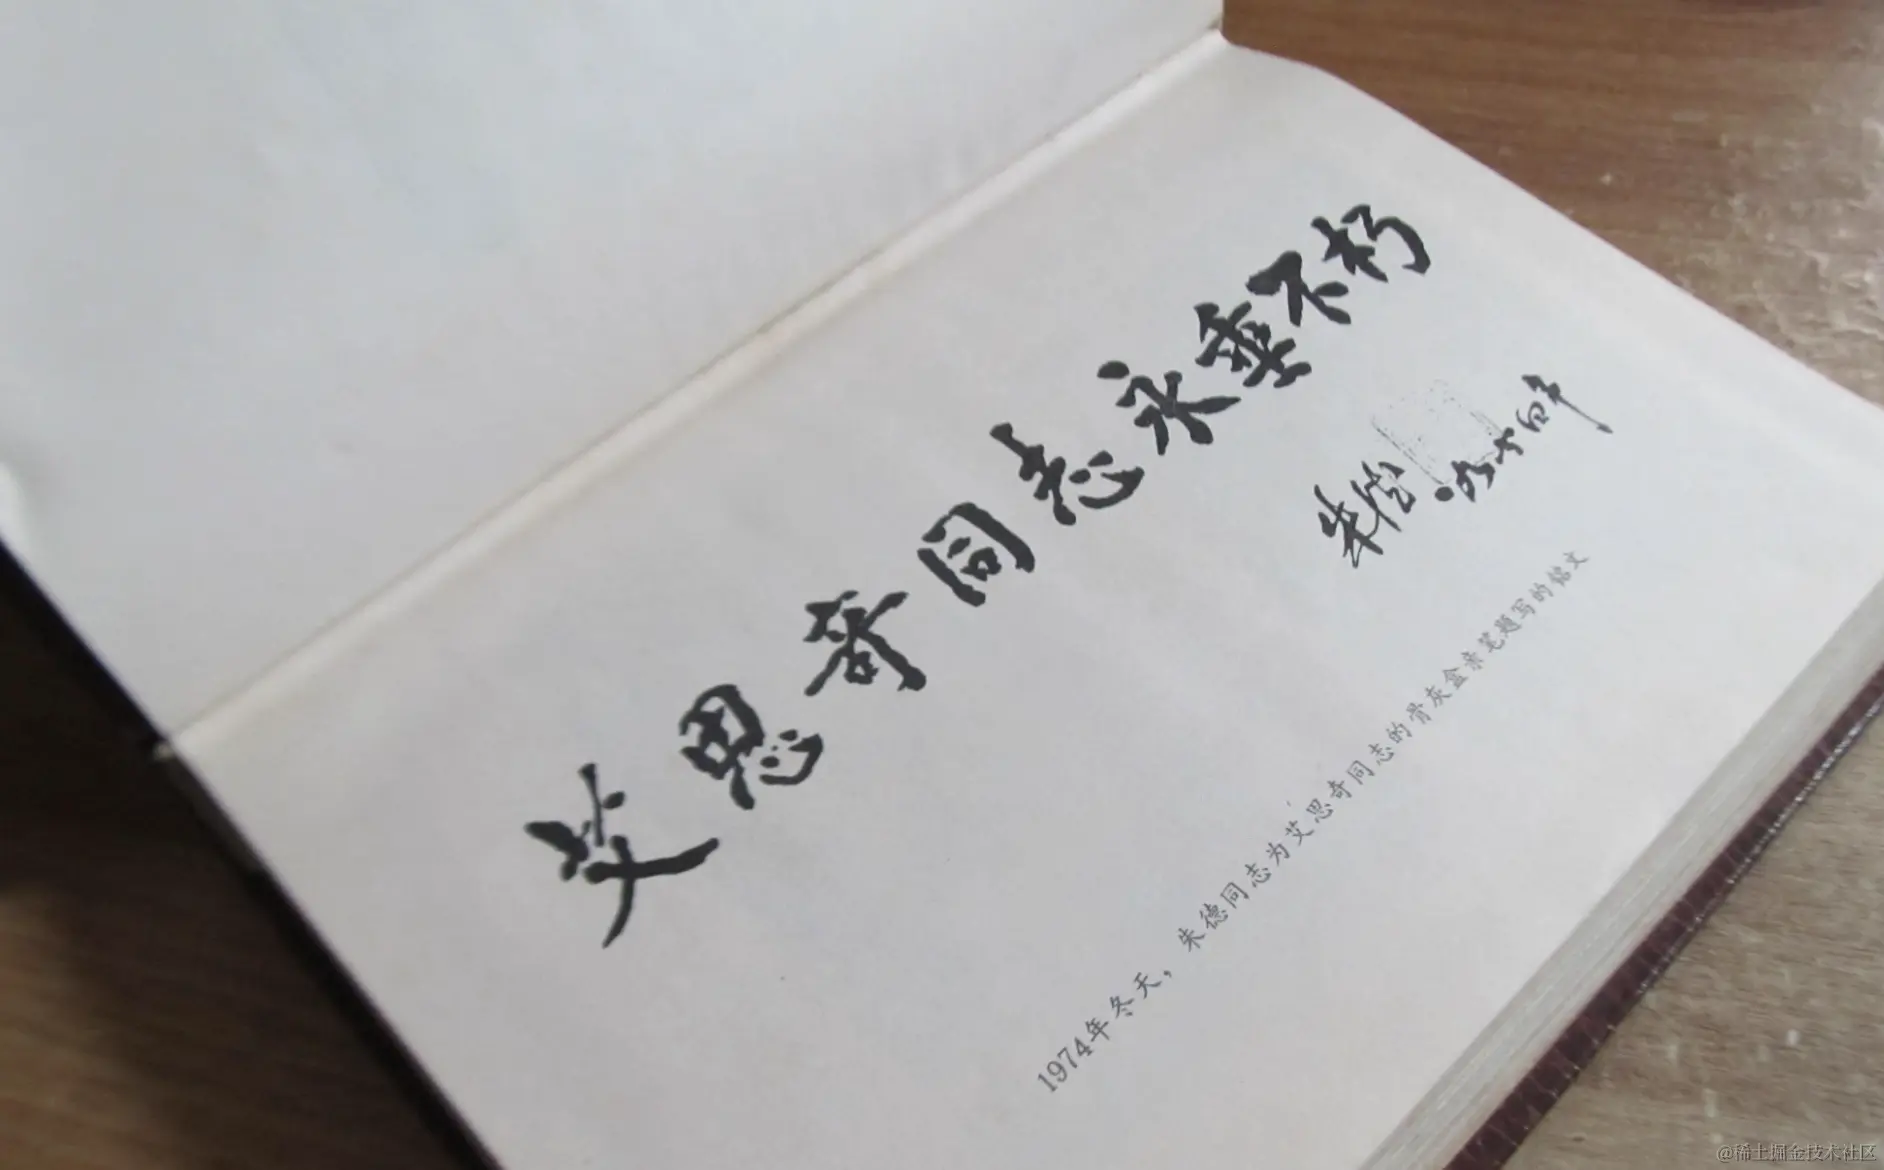 艾思奇同志永垂不朽
朱德
1974年冬天，朱德同志为艾思奇同志的骨灰盒亲笔题写的铭文
@稀土掘金技术社区